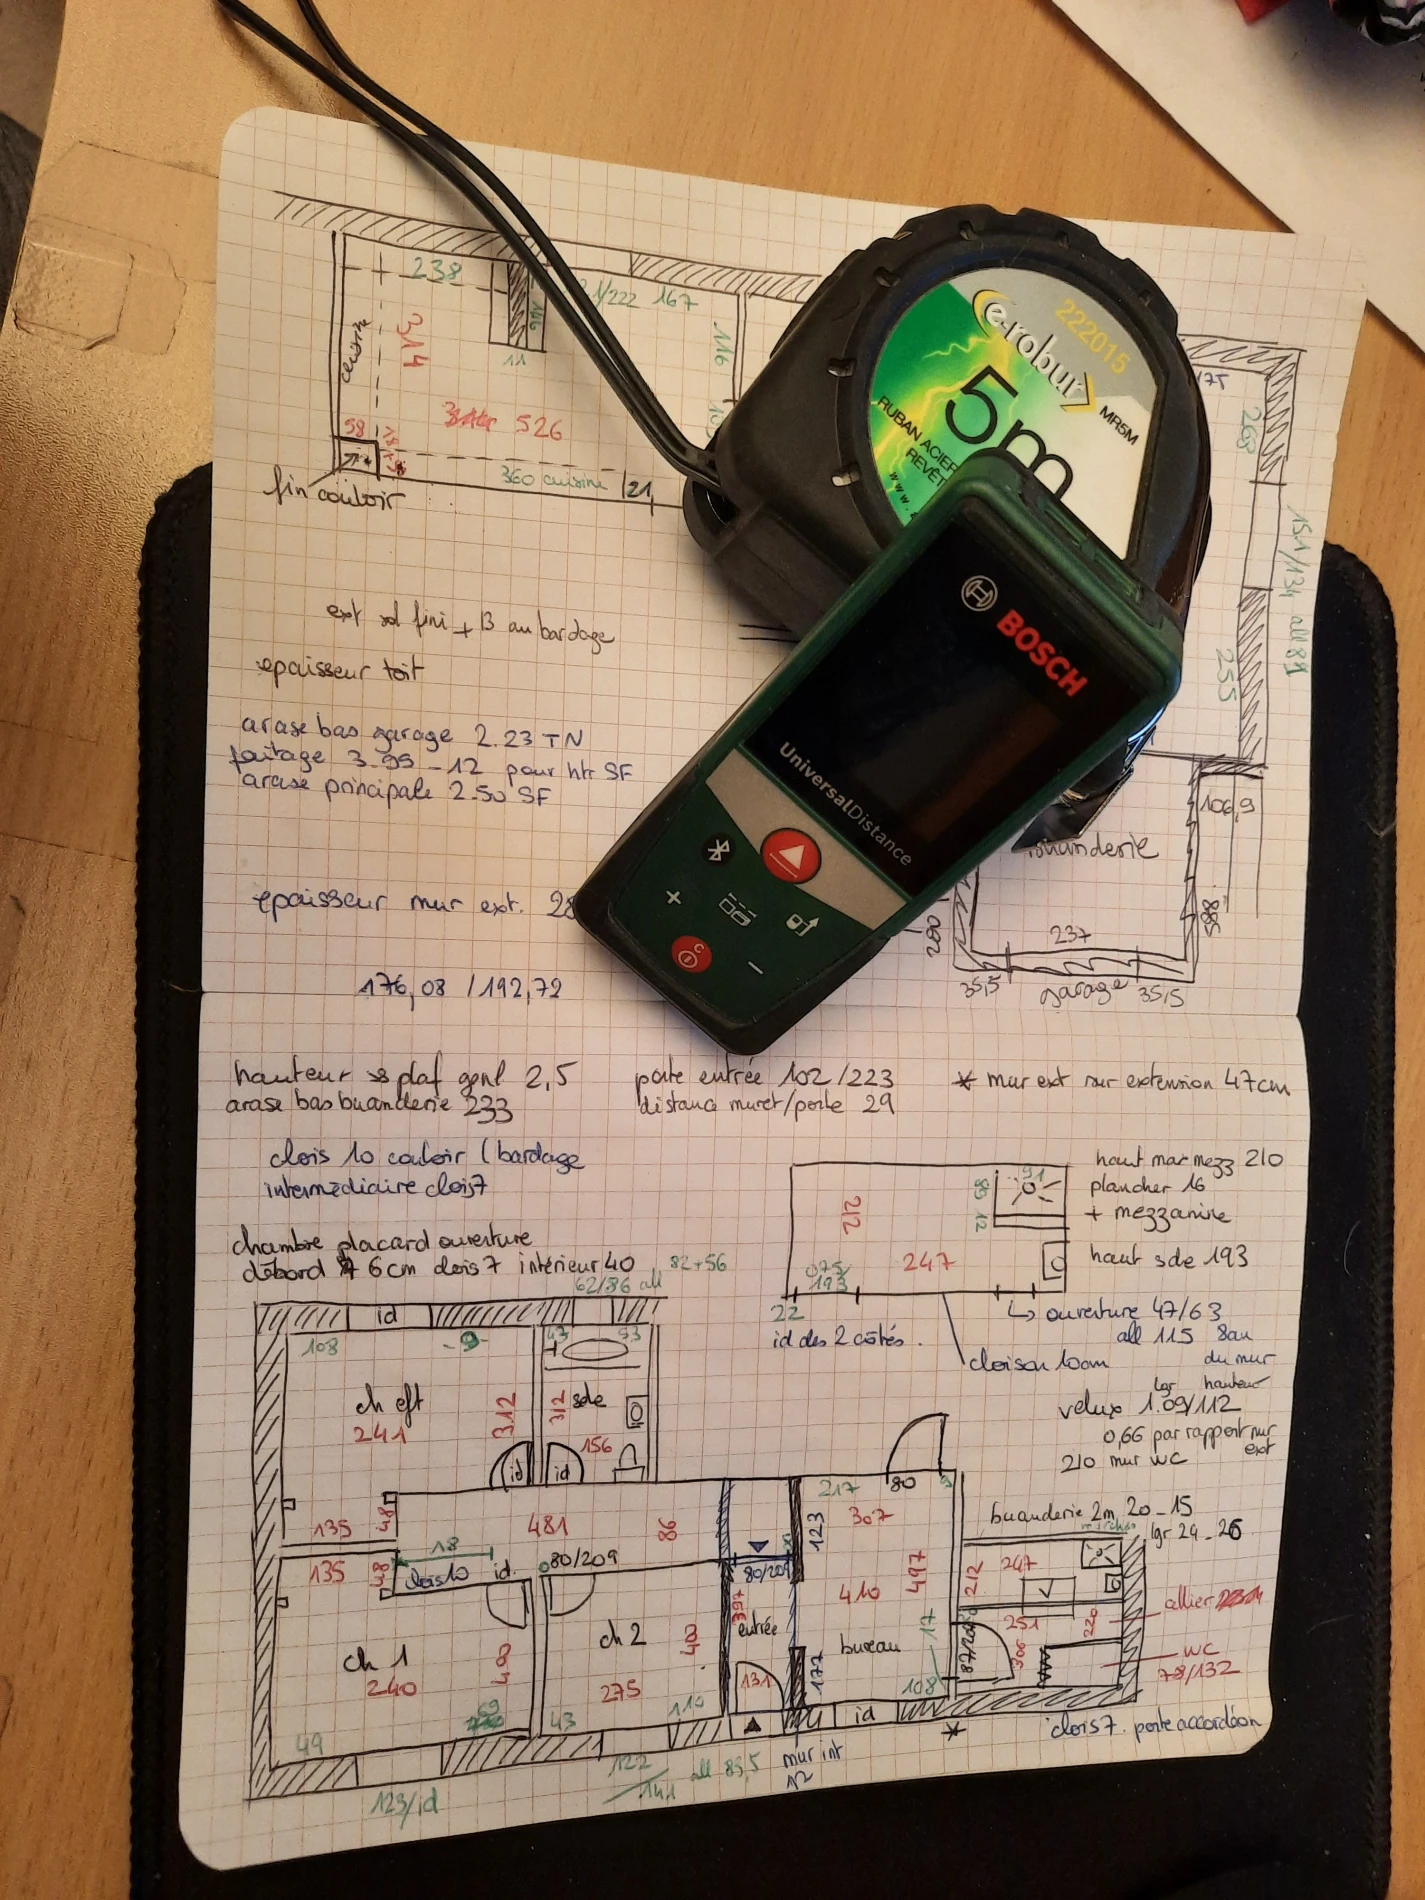 238
167
146
11
116
314
cuisine
526
58
360 cuisine
21
fin couloir
222015
e-robur
5m
MR5M
RUBAN ACIER
REVÊT
175
268
151/134 all 89
255
BOSCH
UniversalDistance
C
ext sol fini + 13 au bardage
epaisseur toit
arase bas garage 2.23 TN
faitage 3.95 - 12 pour htr SF
arase principale 2.50 SF
epaisseur mur ext. 28
176,08 / 192,72
106,9
buanderie
885
280
237
35,5
garage
35,5
hauteur ss plaf genl 2,5
arase bas buanderie 233
porte entrée 102/223
distance muret/porte 29
* mur ext sur extension 47cm
clois 10 couloir (bardage
intermédiaire clois 7
chambre placard ouverture
débord 6cm clois 7 intérieur 40
82+56
62/86 all
212
247
89
12
91
075/
193
22
id des 2 côtés.
cloison 10cm
haut mar mezz 210
plancher 16
+ mezzanine
haut sde 193
↳ ouverture 47/63
all 115
du mur
lgr hauteur
velux 1.09/112
0,66 par rapport mur
ext
210 mur wc
id
108
9
43
53
ch eft
241
312
312
sde
156
id
id
135
48
481
86
135
48
18
clois 10
id.
80/209
80/209
ch 1
240
ch 2
275
49
43
110
123/id
122
141
all 89,5
mur int
12
357
entrée
131
217
80
307
123
410
497
bureau
177
17
108
id
*
buanderie 2m, 20 - 15
lgr 24 - 26
212
247
251
220
306
87/205
cellier
WC
78/132
clois 7. porte accordéon